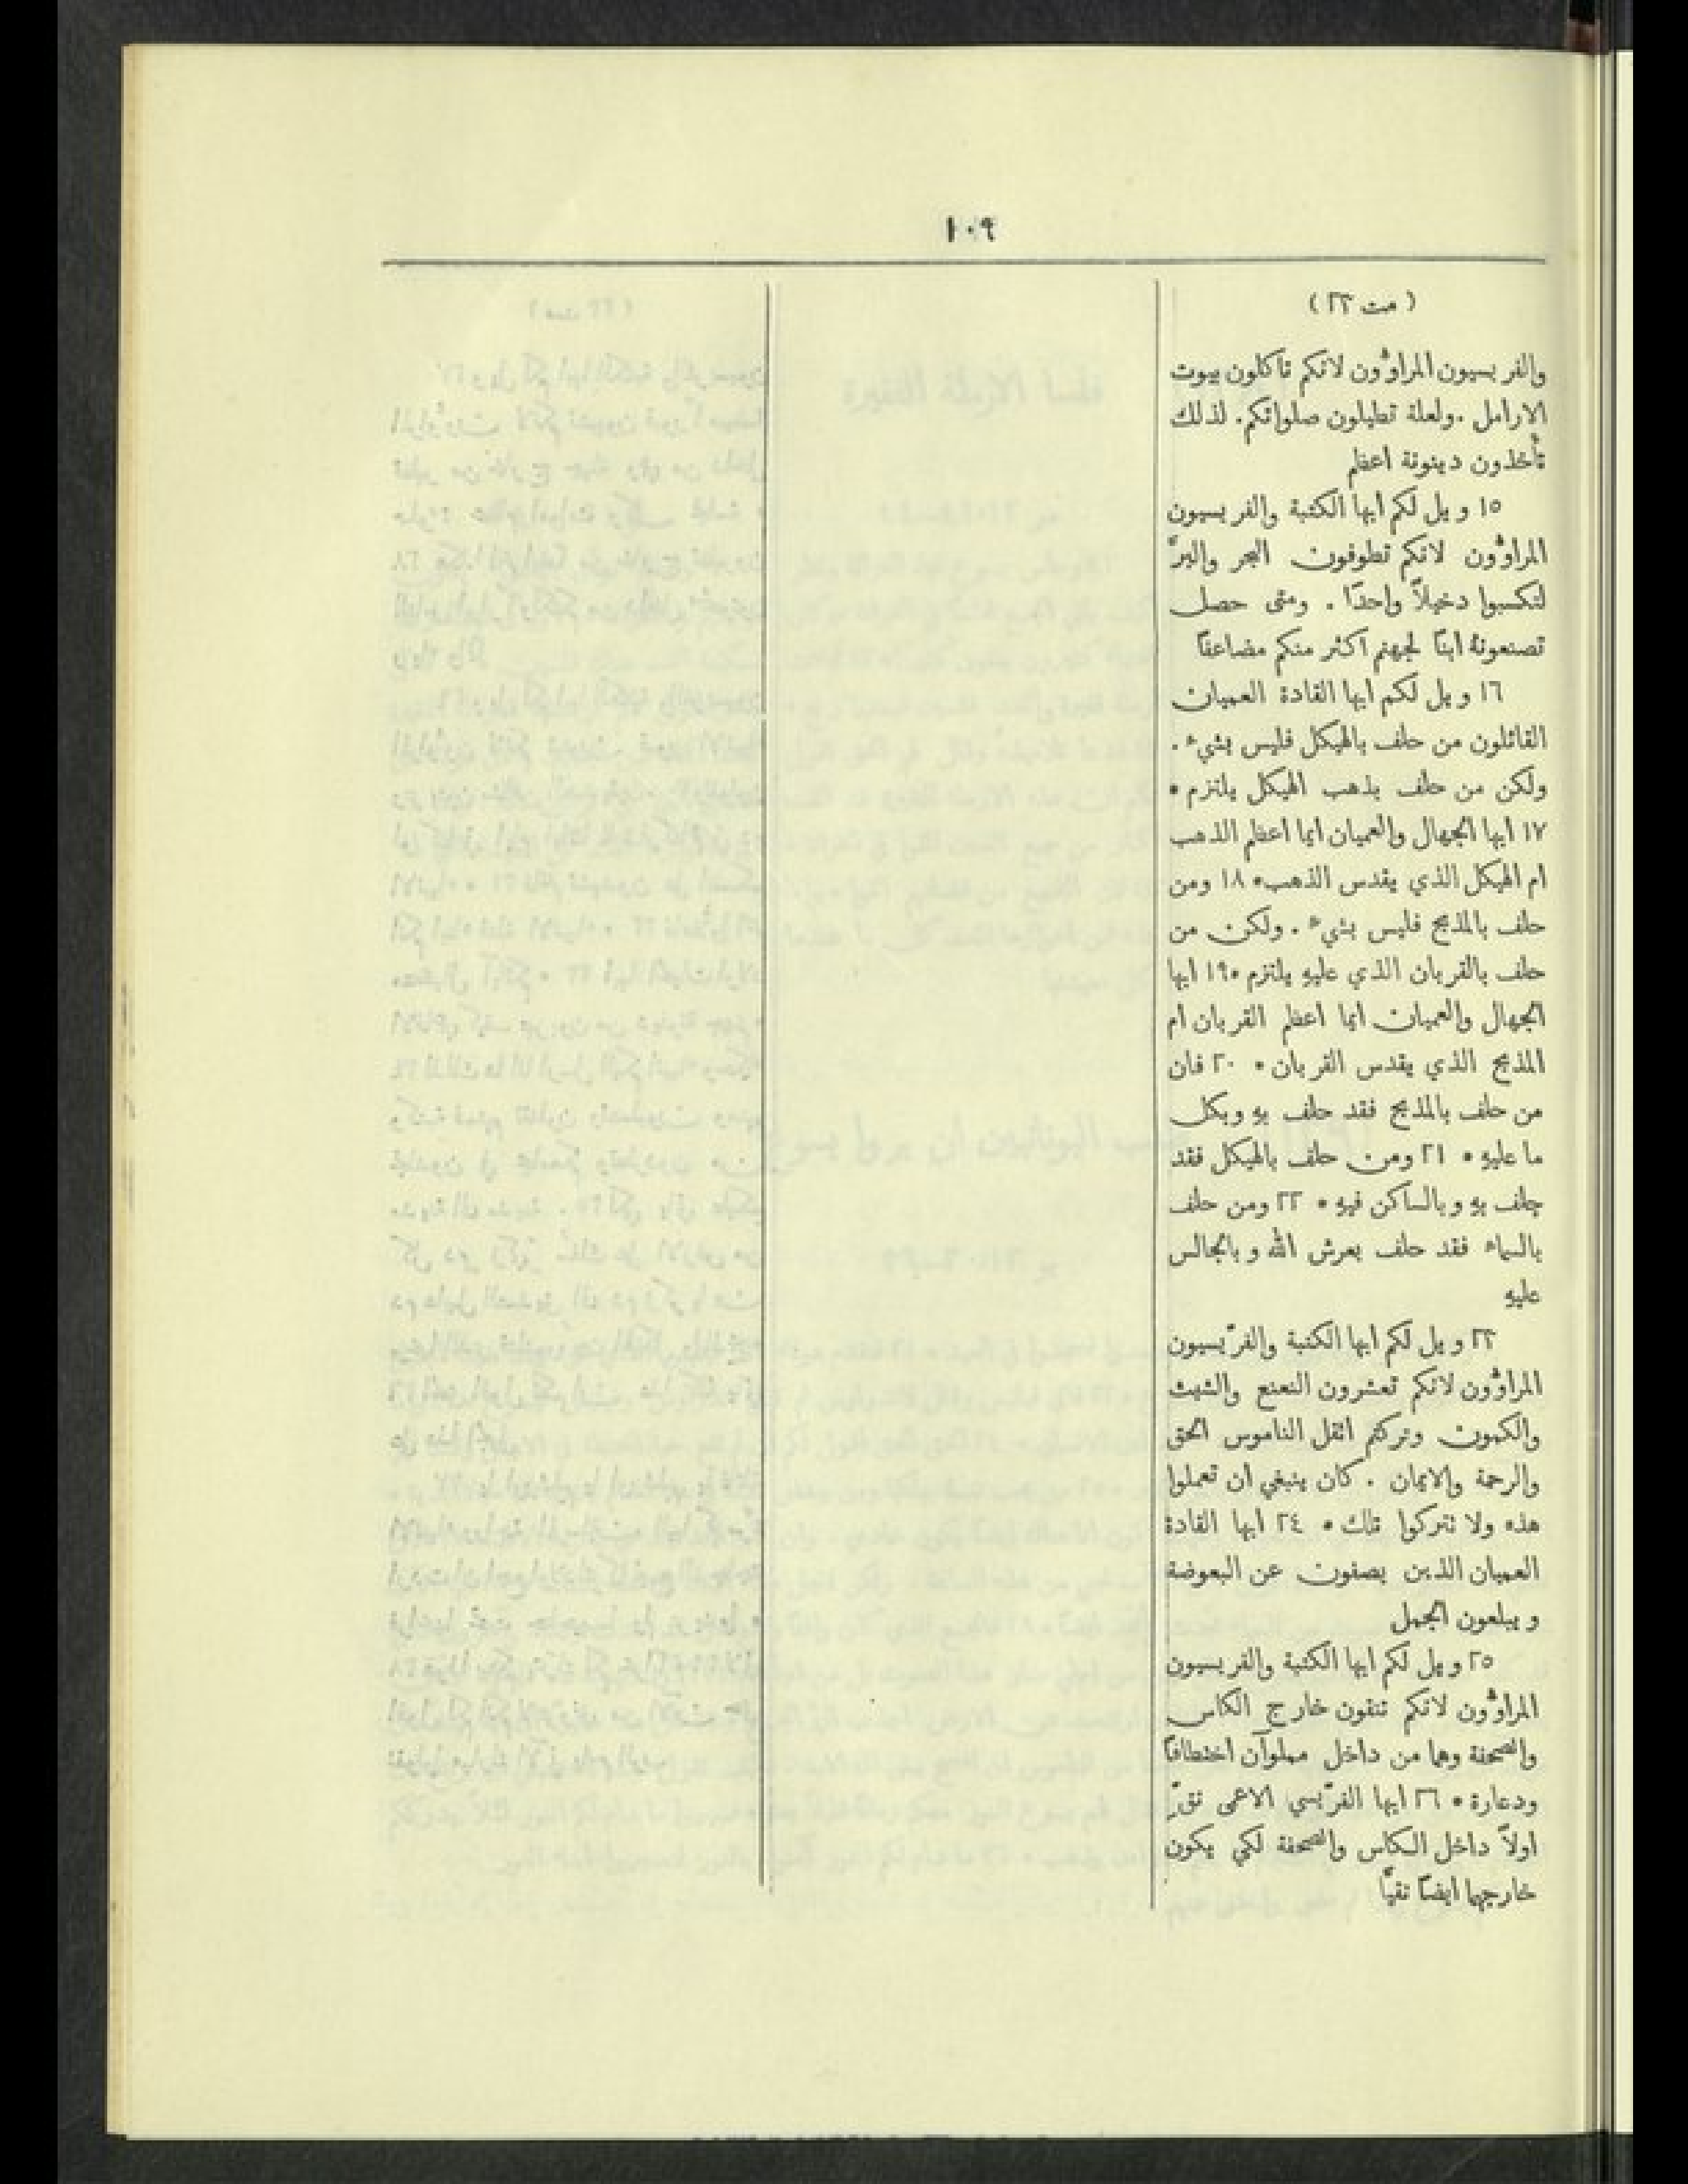 ١٠٩
( مت ٢٣ )
والفريسيون المراوُّون لانكم تاكلون بيوت
الارامل . ولعلة تطيلون صلواتكم . لذلك
تأخذون دينونة اعظم
١٥ ويل لكم ايها الكتبة والفريسيون
المراوُّون لانكم تطوفون البحر والبرَّ
لتكسبوا دخيلاً واحدًا . ومتى حصل
تصنعونهُ ابنًا لجهنم اكثر منكم مضاعفًا
١٦ ويل لكم ايها القادة العميان
القائلون من حلف بالهيكل فليس بشيء .
ولكن من حلف بذهب الهيكل يلتزم •
١٧ ايها الجهال والعميان ايما اعظم الذهب
ام الهيكل الذي يقدس الذهب • ١٨ ومن
حلف بالمذبح فليس بشيء . ولكن من
حلف بالقربان الذي عليهِ يلتزم • ١٩ ايها
الجهال والعميان ايما اعظم القربان ام
المذبح الذي يقدس القربان • ٢٠ فان
من حلف بالمذبح فقد حلف بهِ وبكل
ما عليهِ • ٢١ ومن حلف بالهيكل فقد
حلف بهِ وبالساكن فيهِ • ٢٢ ومن حلف
بالسماء فقد حلف بعرش الله وبالجالس
عليهِ
٢٣ ويل لكم ايها الكتبة والفرّيسيون
المراوُّون لانكم تعشرون النعنع والشبث
والكمون وتركتم اثقل الناموس الحق
والرحمة والايمان . كان ينبغي ان تعملوا
هذه ولا تتركوا تلك • ٢٤ ايها القادة
العميان الذين يصفون عن البعوضة
ويبلعون الجمل
٢٥ ويل لكم ايها الكتبة والفريسيون
المراوُّون لانكم تنقون خارج الكاس
والصحفة وهما من داخل مملوآن اختطافًا
ودعارة • ٢٦ ايها الفرّيسي الاعمى نقِّ
اولاً داخل الكاس والصحفة لكي يكون
خارجهما ايضًا نقيًّا